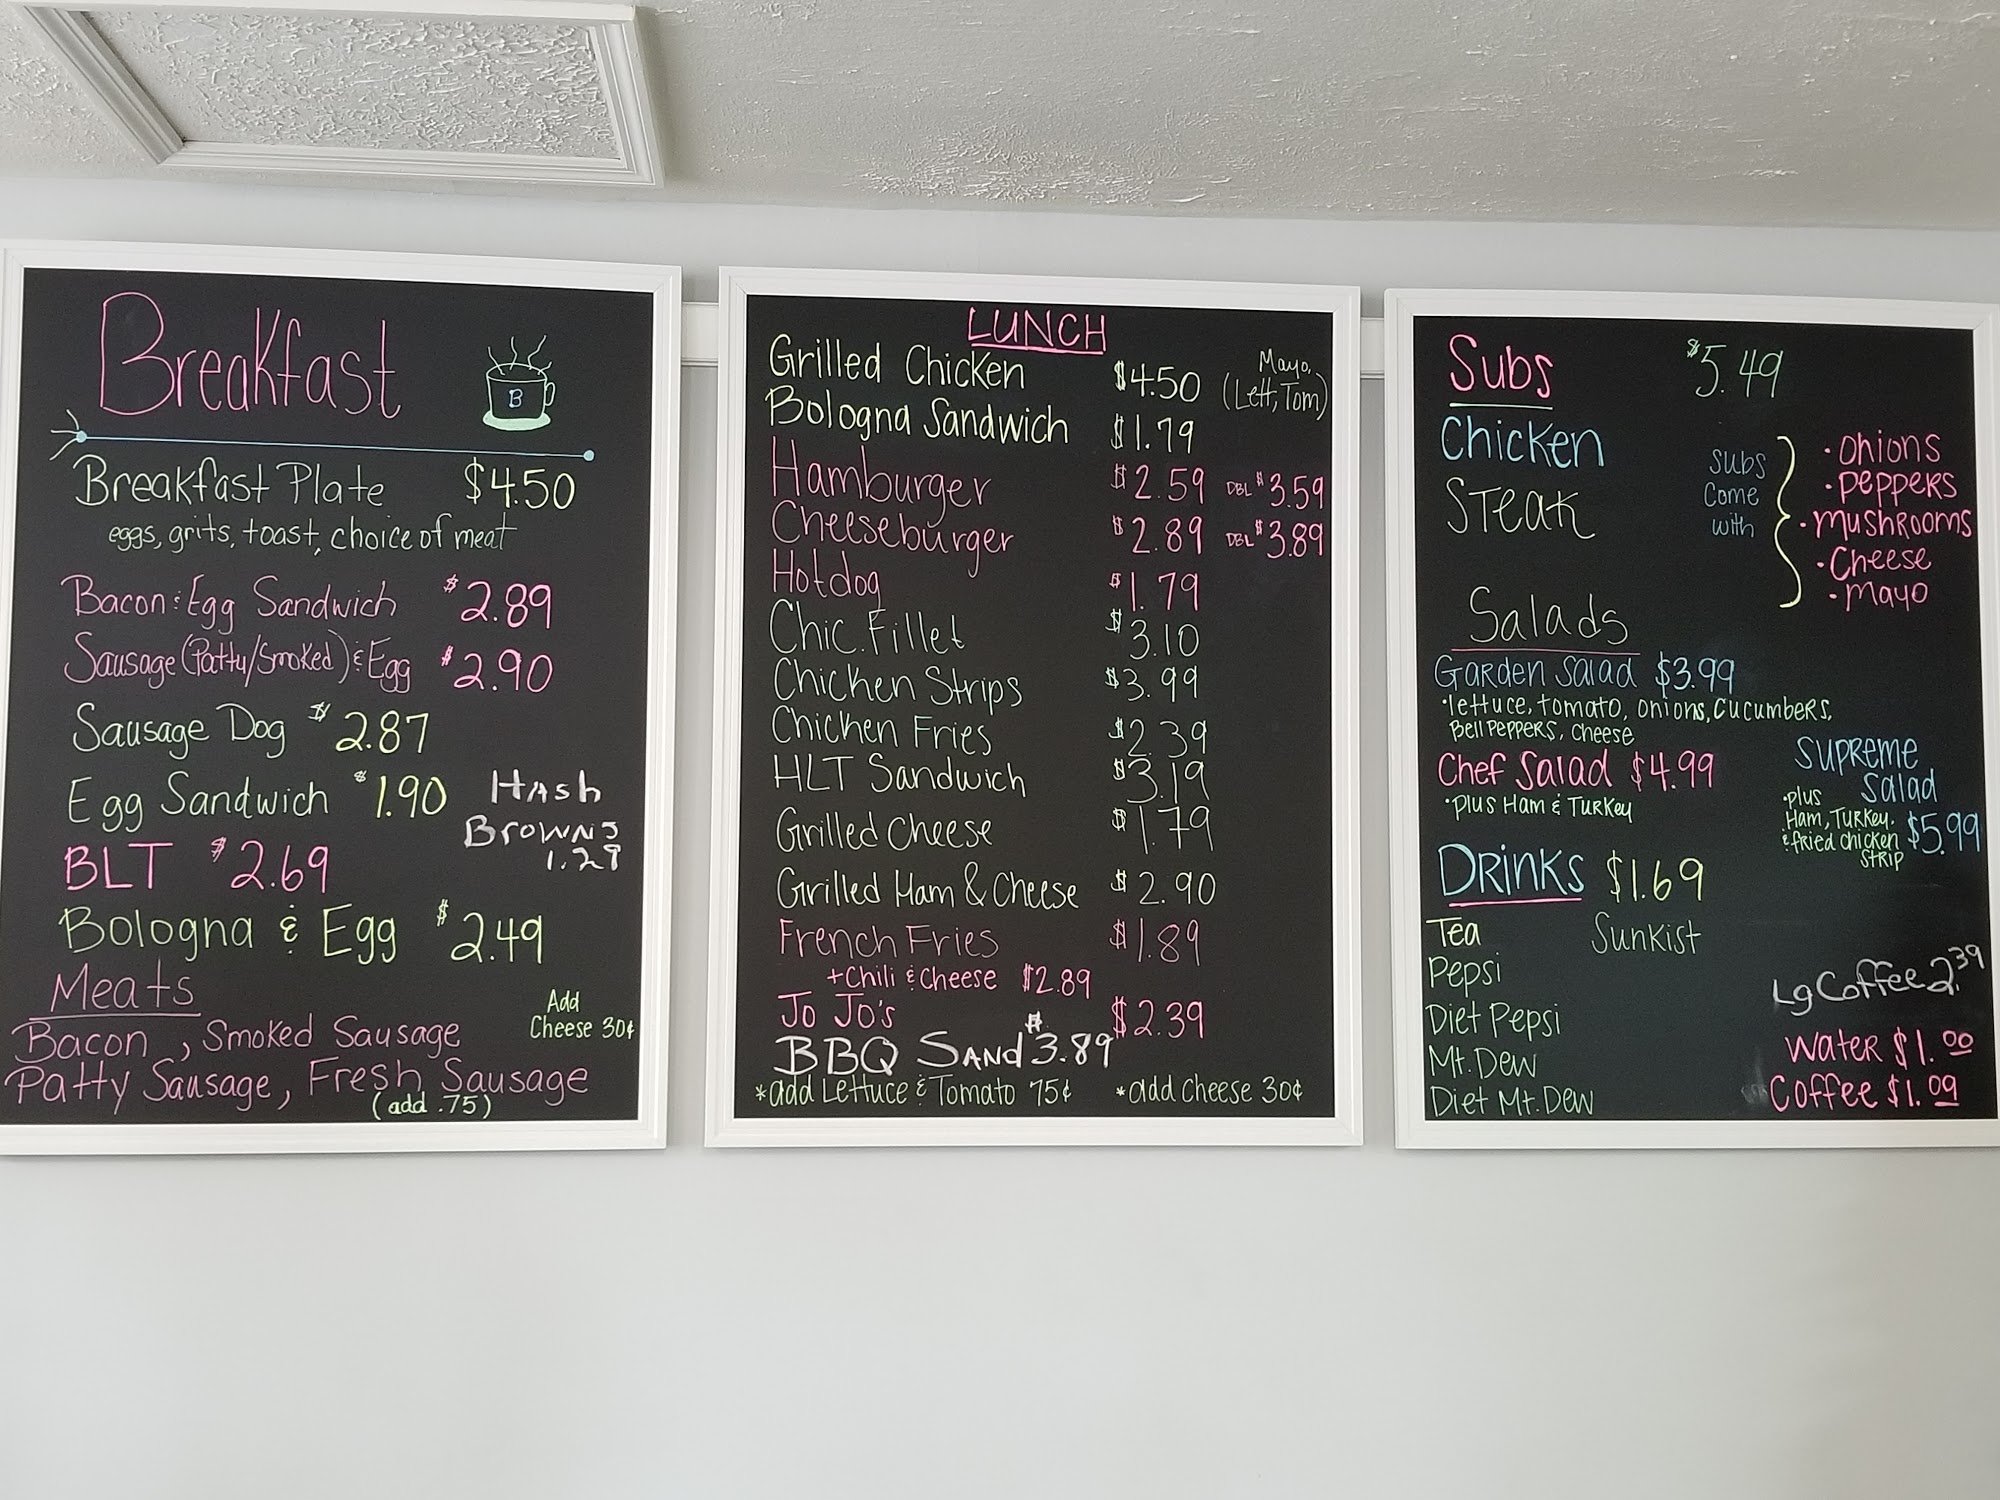 Breakfast
B
Breakfast Plate $4.50
eggs, grits, toast, choice of meat
Bacon & Egg Sandwich $2.89
Sausage (Patty/Smoked) & Egg $2.90
Sausage Dog $2.87
Egg Sandwich $1.90
Hash
Browns
1.29
BLT $2.69
Bologna & Egg $2.49
Meats
Add
Cheese 30¢
Bacon, Smoked Sausage
Patty Sausage, Fresh Sausage
(add .75)
LUNCH
Grilled Chicken $4.50 Mayo,
(Lett, Tom)
Bologna Sandwich $1.79
Hamburger $2.59 DBL $3.59
Cheeseburger $2.89 DBL $3.89
Hotdog $1.79
Chic. Fillet $3.10
Chicken Strips $3.99
Chicken Fries $2.39
HLT Sandwich $3.19
Grilled Cheese $1.79
Grilled Ham & Cheese $2.90
French Fries $1.89
+Chili & Cheese $2.89
Jo Jo's $2.39
BBQ Sand $3.89
*add Lettuce & Tomato 75¢ *add Cheese 30¢
Subs $5.49
Chicken
Steak
Subs
Come
with
• Onions
• Peppers
• Mushrooms
• Cheese
• Mayo
Salads
Garden Salad $3.99
• lettuce, tomato, onions, cucumbers,
Bell Peppers, Cheese
Chef Salad $4.99
• Plus Ham & Turkey
Supreme
Salad
• Plus
Ham, Turkey,
& fried chicken
Strip
$5.99
Drinks $1.69
Tea
Sunkist
Pepsi
Diet Pepsi
Mt. Dew
Diet Mt. Dew
Lg Coffee 2.39
Water $1.00
Coffee $1.09